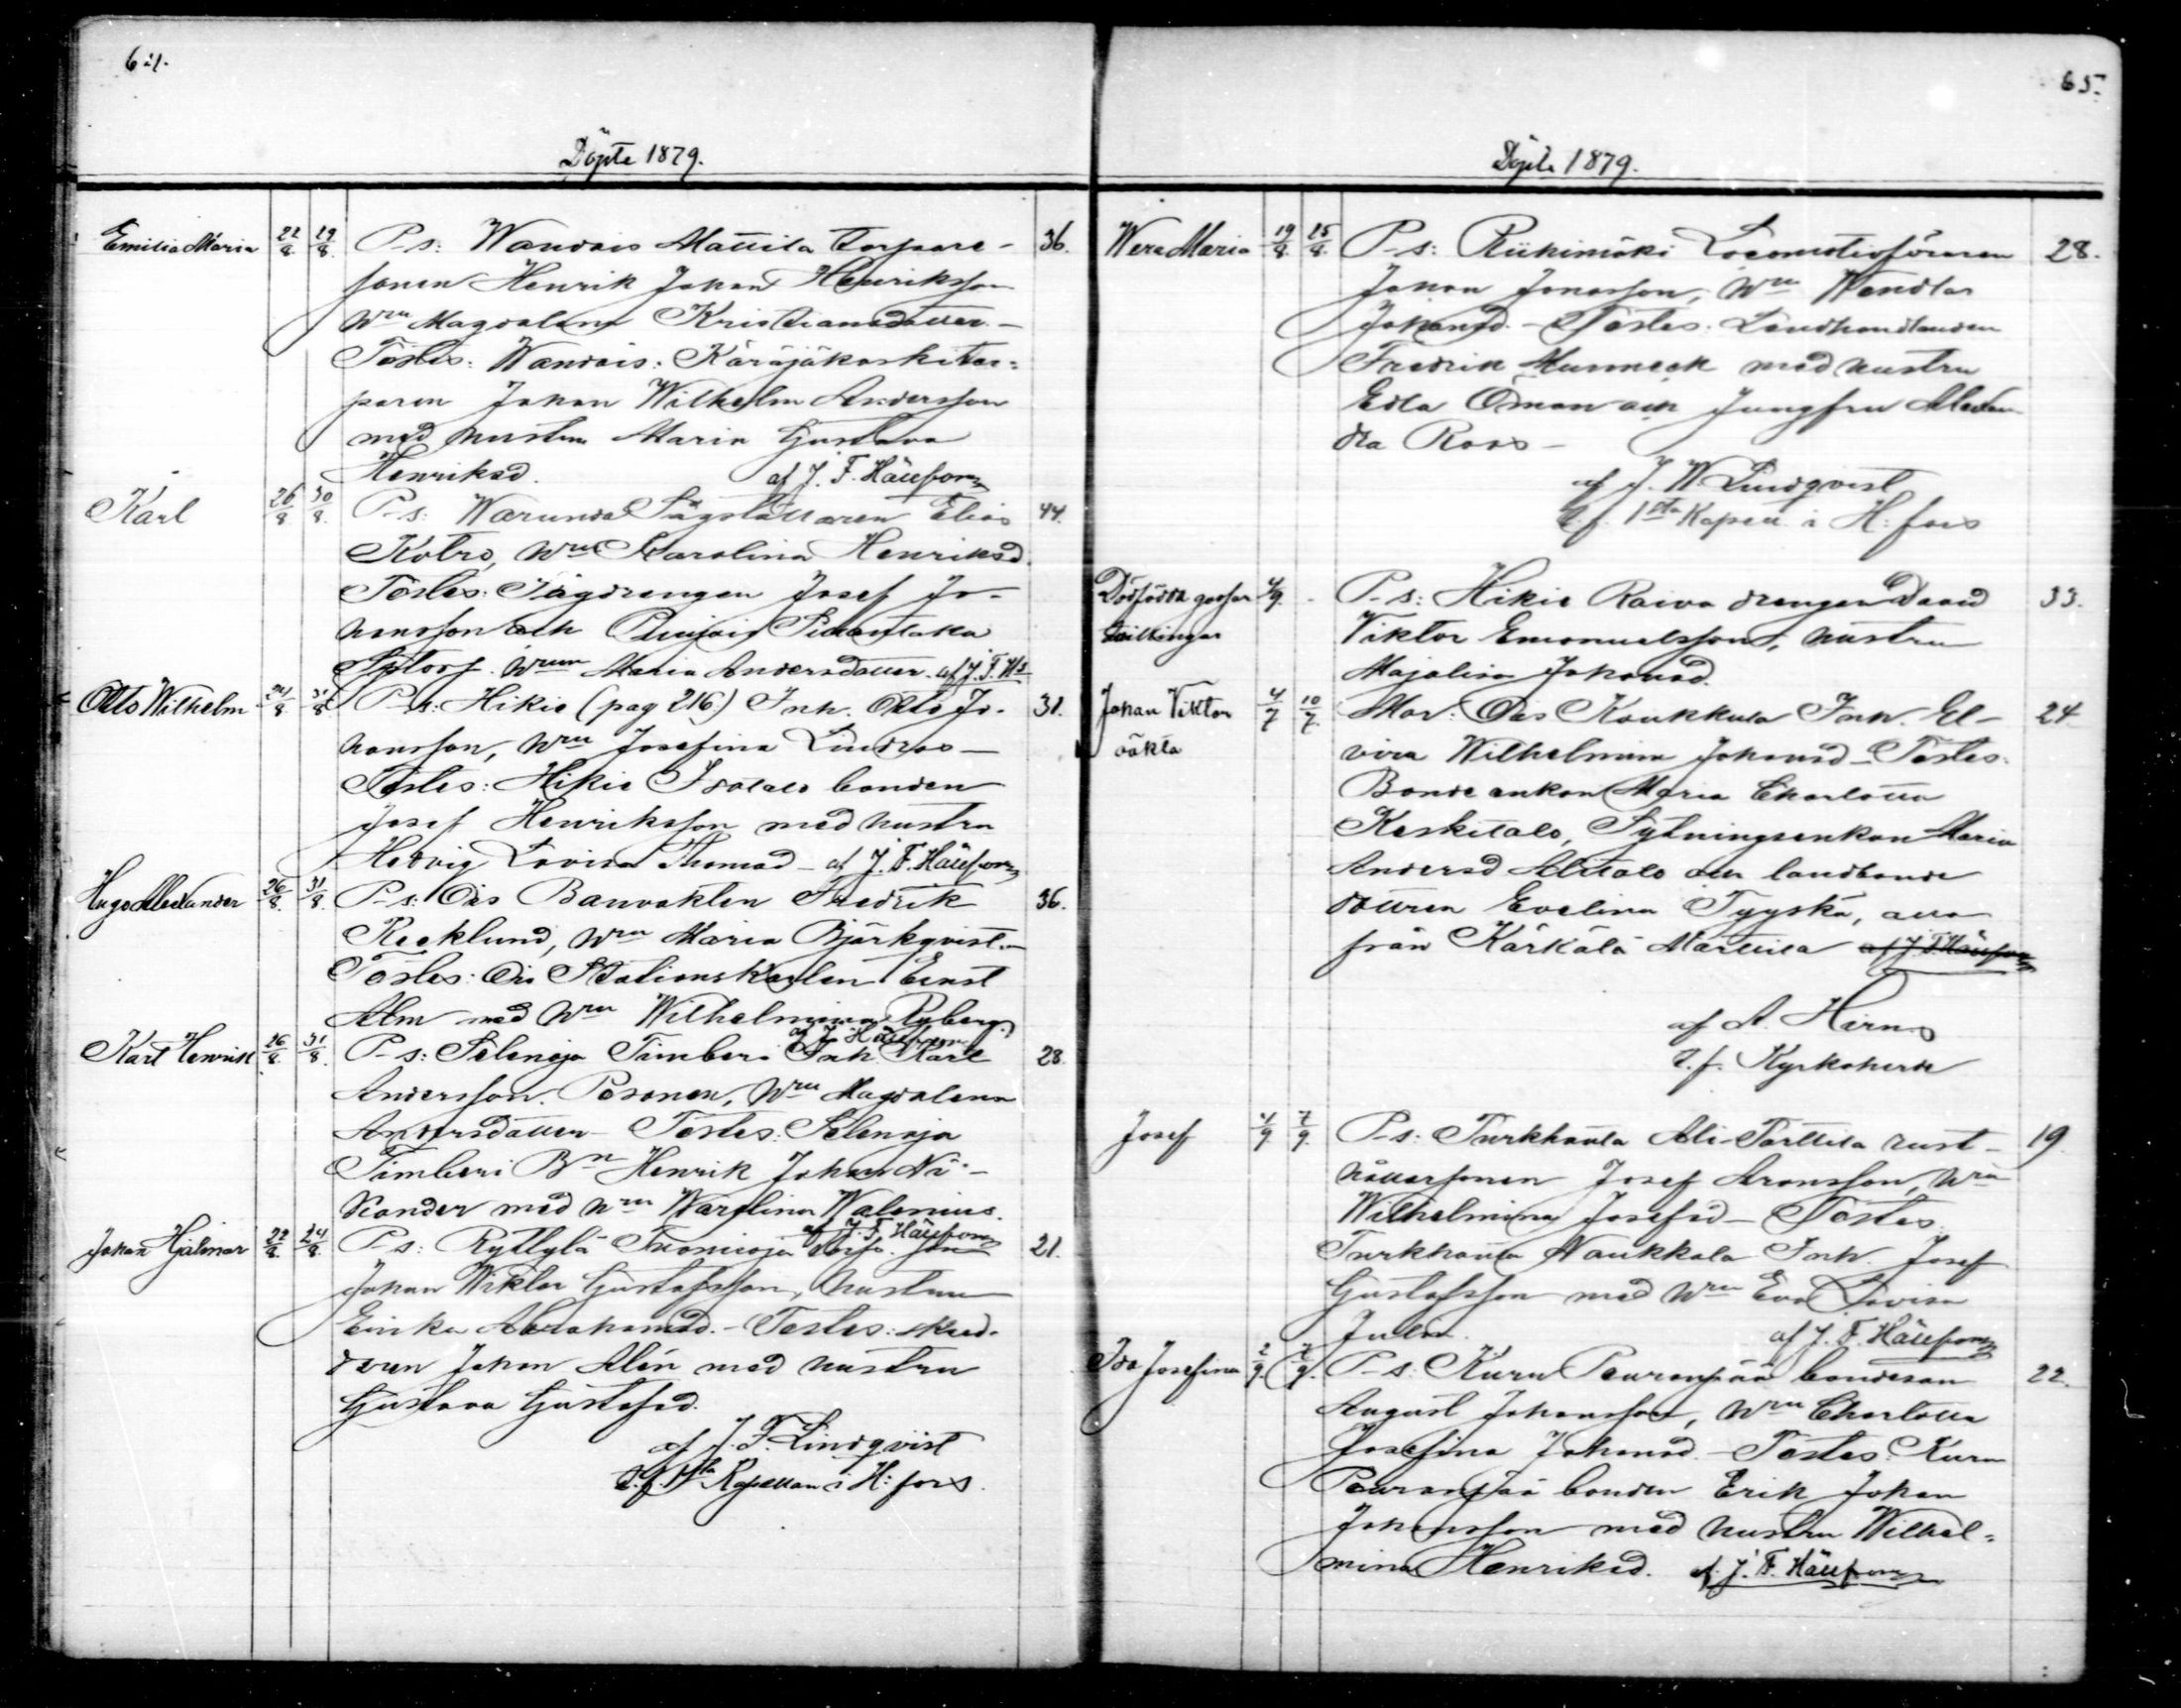 64.
Döpte 1879.
Emilia Maria 22/8 29/8 P-s: Wandais Mattila torpare- 36.
sonen Henrik Johan Henriksson
Wru Magdalena Kristiansdotter.-
Testes: Wandais: Käräjäkoski tor=
paren Johan Wilhelm Andersson
med hustru Maria Gustava
Henriksd. af J. F. Hällfors
Karl 26/8 30/8 P-s: Warunda Elias 44.
Kotro, Wru Karolina Henriksd.
Testes: Sågdrengen Josef Jo-
hansson och
Wrun Maria Andersdotter. af J. F. H-s
Otto Wilhelm 24/8 31/8 P-s: Hikie (pag 216) Inh. Otto Jo- 31.
hansson, Wru Josefina Lindros-
Testes: Hikie Isotalo bonden
Josef Henriksson med hustru
Hedvig Lovisa Thomasd- af J. F. Hällfors
Hugo Alexander 26/8. 31/8. P-s: Ois Banvakten Fredrik 36.
Recklund, Wru Maria Björkqvist.-
Testes: Ois Stationskarlen Ernst
Alm med Wru Wilhelmina Ryberg.
af J. F. Hällfors
Karl Henrik 26/8. 31/8. P-s: Selenoja Timberi Inh. Karl 28.
Andersson Posonen, Wru Magdalena
Andersdotter- Testes: Selenoja
Timberi Bn Henrik Johan Ni-
kander med Wru Walenius.
af J. F. Hällfors
Johan Hjalmar 22/8. 24/8. P-s: Ryttylä Torp. son 21.
Johan Wiktor Gustafsson, hustru
Erika Abrahamsd.- Testes: skräd-
daren Johan Alén med hustru
Gustava Gustafsd.
af J. F. Lindqvist
t.f. 1sta Kapellan i H:fors.
65.
Döpte 1879.
Wera Maria 19/8. 25/8. P-s: Riihimäki Locomotivföraren 28.
Johan Jonasson, Wru Wendla
Johansd.- Testes: Landhandlanden
Fredrik Munneck med hustru
Edla Öman och Jungfru Alexan
dra Roos-
af J. W. Lindqvist
t.f. 1sta Kapell. i H:fors
Dödfödda gossar 4/9. P-s: Hikie Raiva drengen David 33.
tvillingar Viktor Emanuelsson, hustru
Majalisa Johansd.
Johan Viktor 4/7 10/7. Mor: Ois Koukkula Inh. El- 24
oäkta vira Wilhelmina Johansd- Testes:
Bonde enkan Maria Charlotta
Keskitalo, Sytningsenkan Maria
Andersd Alitalo och landbonde
dottren Evelina Tyyskä, alla
från Kärkölä Marttila af J. F. Hällfors
af A. Hirn
t.f. Kyrkoherde
Josef 4/9 7/9. P-s: Turkhauta Ali-Tarttila rust- 19.
hållarsonen Josef Aronsson, Wru
Wilhelmina Josefsd- Testes:
Turkhauta Naukkala Inh. Josef
Gustafsson med Wru Eva Lovisa
Julin. af J. F. Hällfors
Ida Josefina 2/9. 7/9. P-s: Kuru Peuranpää bondeson 22.
August Johansson, Wru Charlotta
Josefina Johansd.- Testes: Kuru
Peuranpää bonden Erik Johan
Johansson med hustru Wilhel=
mina Henriksd. af J. F. Hällfors